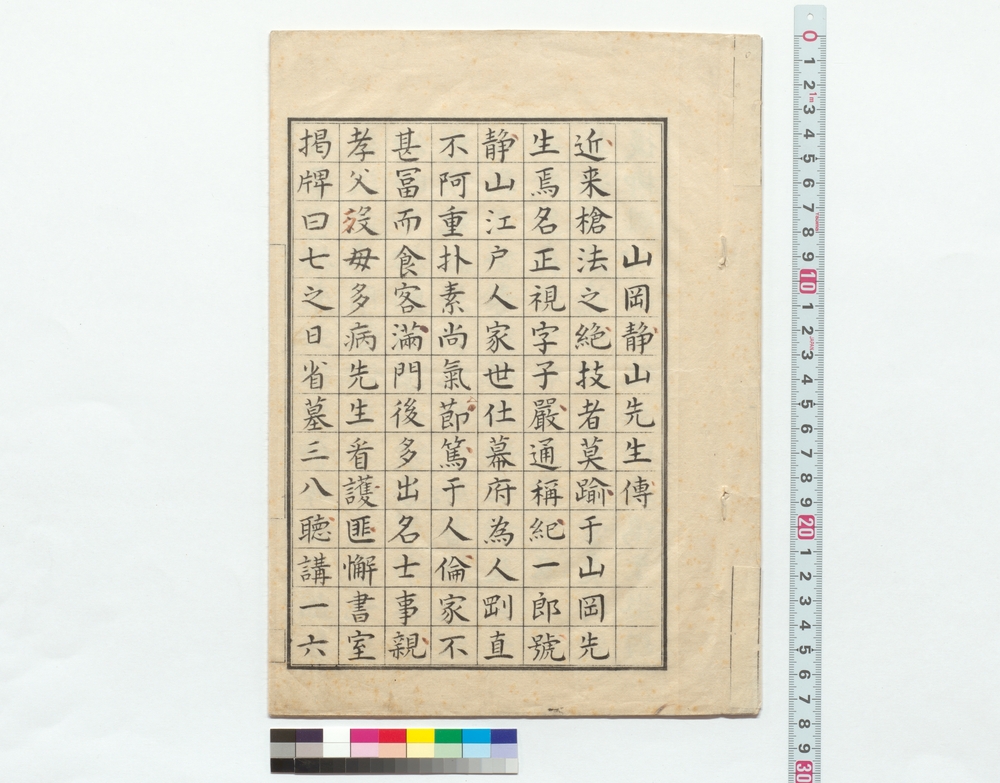 山岡静山先生傳
近来槍法之絶技者莫踰于山岡先
生焉名正視字子嚴通稱紀一郎號
静山江户人家世仕幕府為人剛直
不阿重扑素尚氣節篤于人倫家不
甚冨而食客滿門後多出名士事親
孝父歿母多病先生看護匪懈書室
掲牌曰七之日省墓三八聽講一六
0 1 2 3 4 5 6 7 8 9 10 1 2 3 4 5 6 7 8 9 20 1 2 3 4 5 6 7 8 9 30